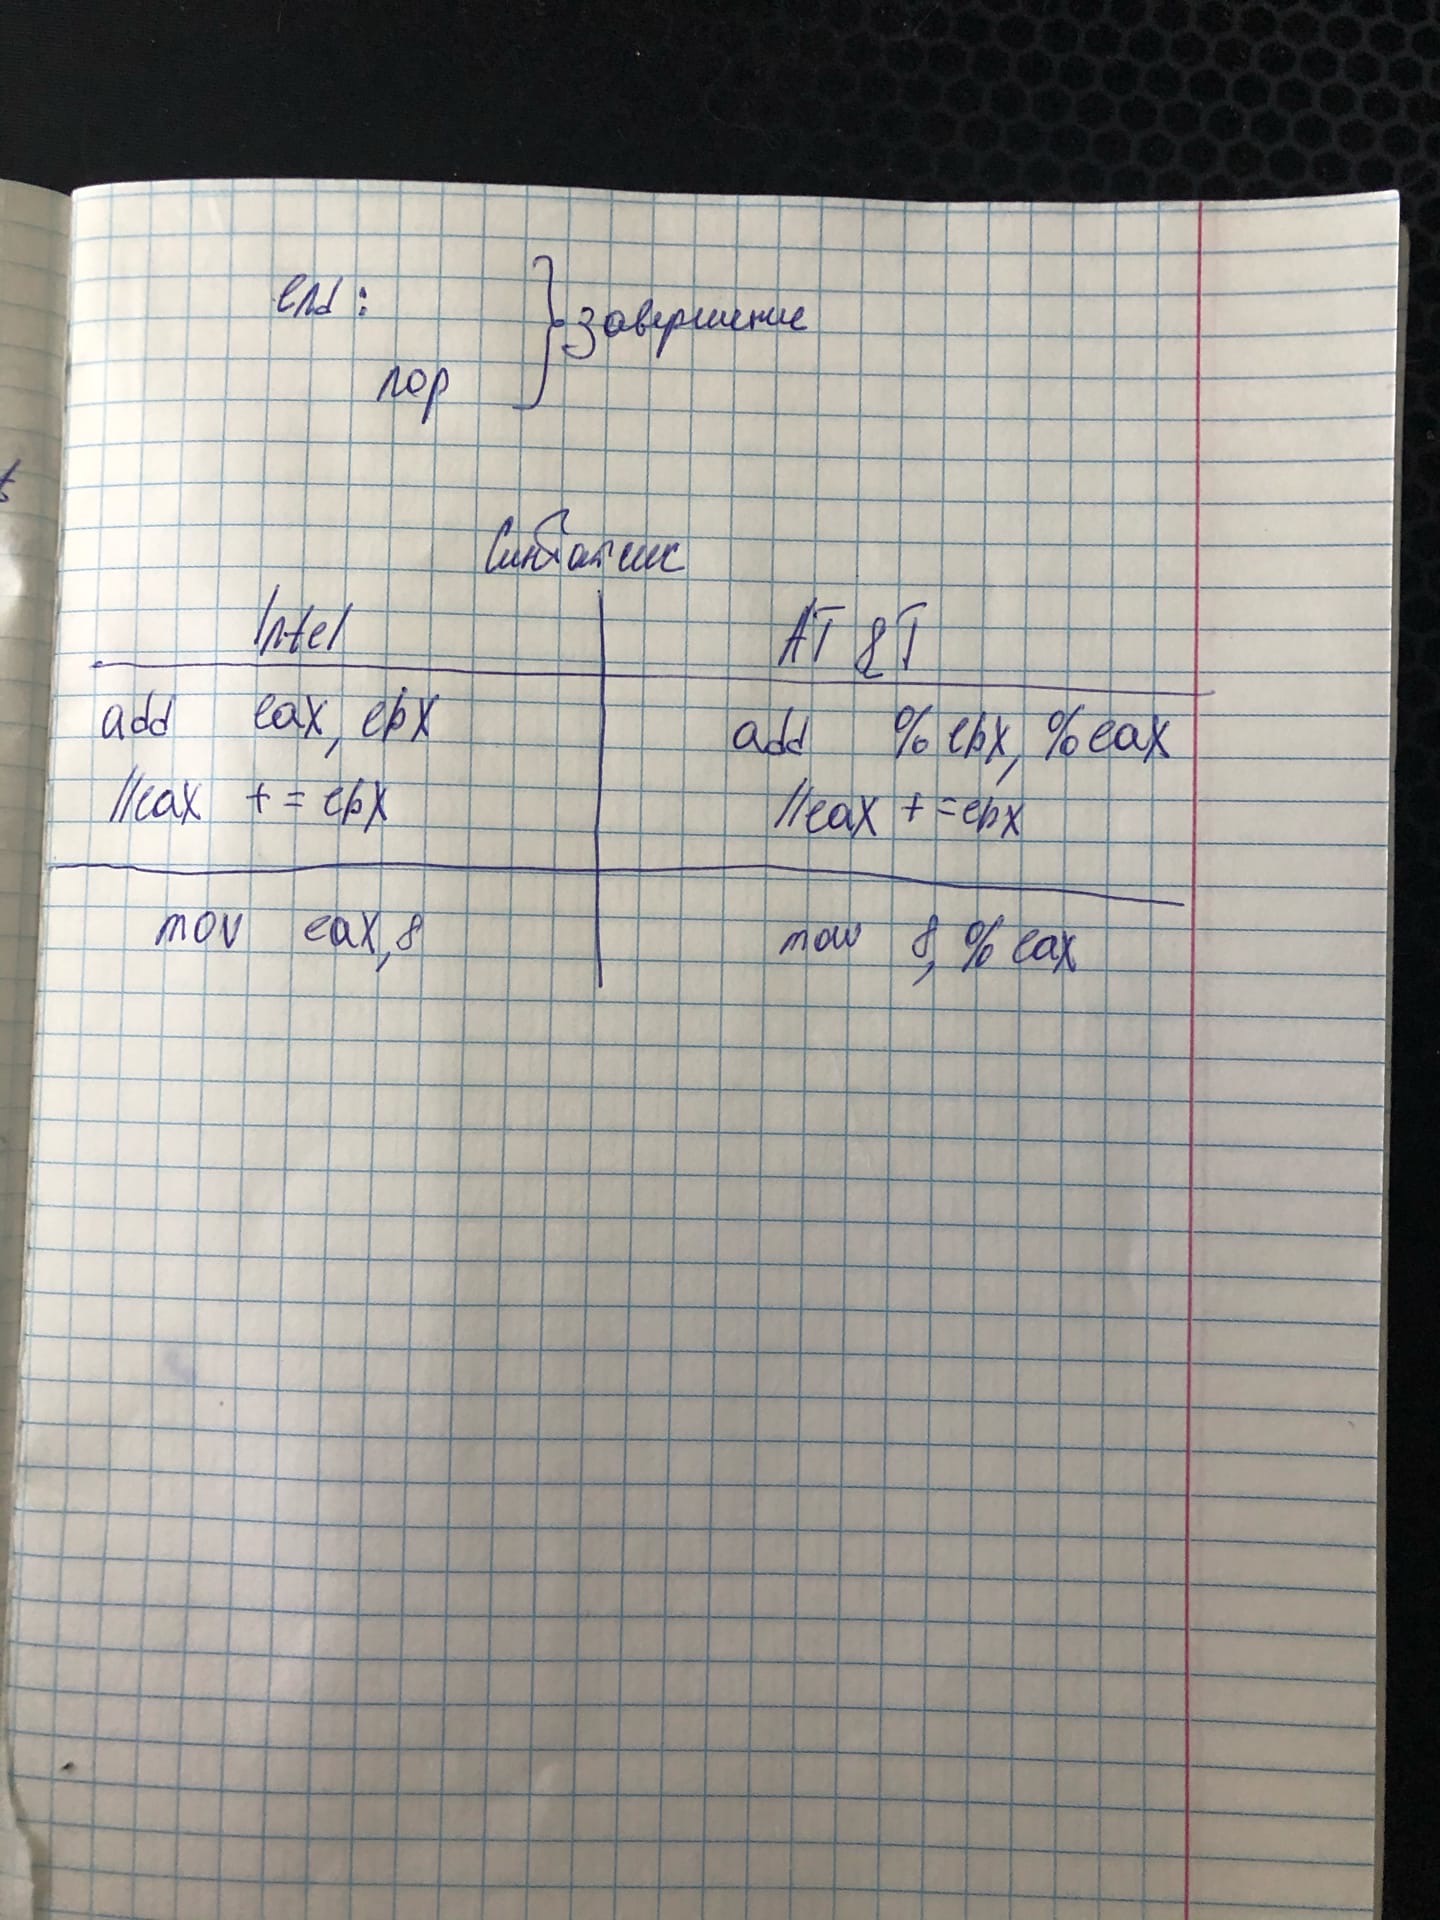 end: завершение
nop
Синтаксис
Intel AT&T
add eax, ebx add %ebx, %eax
//eax += ebx //eax += ebx
mov eax, 8 mov 8, %eax